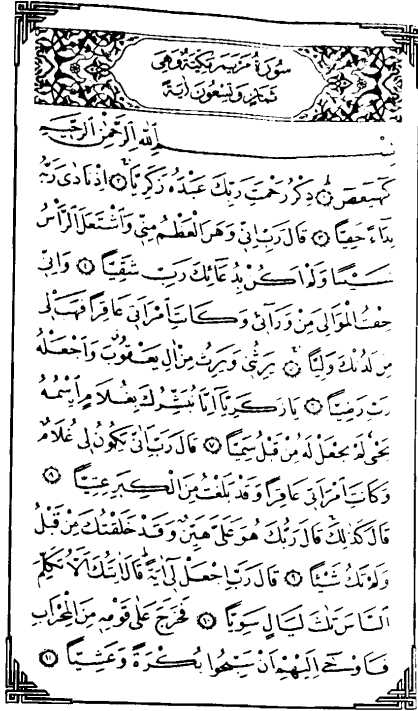 سُورَةُ مَرْيَمَ مَكِّيَّةٌ وَهِيَ
ثَمَانٍ وَتِسْعُونَ اٰيَةً
بِسْمِ اللّٰهِ الرَّحْمٰنِ الرَّحٖيمِ
كٓهٰيٰعٓصٓ ١ ذِكْرُ رَحْمَتِ رَبِّكَ عَبْدَهُ زَكَرِيَّا ٢ اِذْ نَادٰى رَبَّهُ
نِدَٓاءً خَفِيًّا ٣ قَالَ رَبِّ اِنّٖي وَهَنَ الْعَظْمُ مِنّٖي وَاشْتَعَلَ الرَّأْسُ
شَيْبًا وَلَمْ اَكُنْ بِدُعَٓائِكَ رَبِّ شَقِيًّا ٤ وَاِنّٖي
خِفْتُ الْمَوَالِيَ مِنْ وَرَٓاءٖي وَكَانَتِ امْرَاَتٖي عَاقِرًا فَهَبْ لٖي
مِنْ لَدُنْكَ وَلِيًّا ٥ يَرِثُنٖي وَيَرِثُ مِنْ اٰلِ يَعْقُوبَ وَاجْعَلْهُ
رَبِّ رَضِيًّا ٦ يَا زَكَرِيَّٓا اِنَّا نُبَشِّرُكَ بِغُلَامٍ اِسْمُهُ
يَحْيٰى لَمْ نَجْعَلْ لَهُ مِنْ قَبْلُ سَمِيًّا ٧ قَالَ رَبِّ اَنّٰى يَكُونُ لٖي غُلَامٌ
وَكَانَتِ امْرَاَتٖي عَاقِرًا وَقَدْ بَلَغْتُ مِنَ الْكِبَرِ عِتِيًّا ٨
قَالَ كَذٰلِكَ قَالَ رَبُّكَ هُوَ عَلَيَّ هَيِّنٌ وَقَدْ خَلَقْتُكَ مِنْ قَبْلُ
وَلَمْ تَكُ شَيْـًٔا ٩ قَالَ رَبِّ اجْعَلْ لٖٓي اٰيَةً قَالَ اٰيَتُكَ اَلَّا تُكَلِّمَ
النَّاسَ ثَلٰثَ لَيَالٍ سَوِيًّا ١٠ فَخَرَجَ عَلٰى قَوْمِهٖ مِنَ الْمِحْرَابِ
فَاَوْحٰٓى اِلَيْهِمْ اَنْ سَبِّحُوا بُكْرَةً وَعَشِيًّا ١١